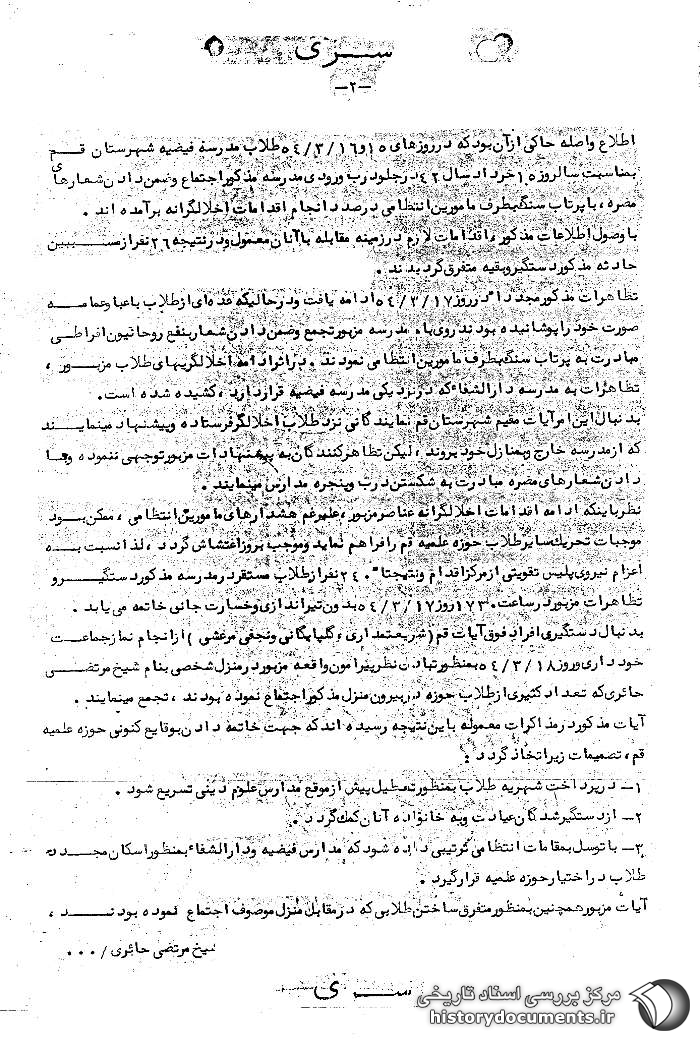 ســری
-۲-
اطلاع واصله حاکی از آن بود که در روزهای ۱۵ و ۵۴/۳/۱۶ طلاب مدرسه فیضیه شهرستان قـم
بمناسبت سالروز ۱۵ خرداد سال ۴۲ در جلو درب ورودی مدرسه مذکور اجتماع وضمن دادن شعارهای
مضره ، با پرتاب سنگ بطرف مامورین انتظامی درصدد انجام اقدامات اخلالگرانه برآمده اند .
با وصول اطلاعات مذکور ، اقدامات لازم در زمینه مقابله با آنان معمول و در نتیجه ۲۶ نفر از مسـببین
حادثه مذکور دستگیر و بقیه متفرق گردیدند .
تظاهرات مذکور مجدداً در روز ۵۴/۳/۱۷ ادامه یافت و در حالیکه عده ای از طلاب با عبا و عمامـه
صورت خود را پوشانیده بودند روی بام مدرسه مزبور تجمع وضمن دادن شعار بنفع روحانیون افراطـی
مبادرت به پرتاب سنگ بطرف مامورین انتظامی نمودند . در اثر ادامه اخلالگریهای طلاب مزبـور ،
تظاهرات به مدرسه دارالشفاء که در نزدیکی مدرسه فیضیه قرار دارد ، کشیده شده است.
بدنبال این امر آیات مقیم شهرستان قم نمایندگانی نزد طلاب اخلالگر فرستاده و پیشنهاد مینماینـد
که از مدرسه خارج و بمنازل خود بروند ، لیکن تظاهرکنندگان به پیشنهادات مزبور توجهی ننموده و بـا
دادن شعارهای مضره مبادرت به شکستن درب و پنجره مدارس مینمایند .
نظر باینکه ادامه اقدامات اخلالگرانه عناصر مزبور ، علیرغم هشدارهای مامورین انتظامی ، ممکن بـود
موجبات تحریک سایر طلاب حوزه علمیه قم را فراهم نماید و موجب بروز اغتشاش گردد ، لذا نسبت بـه
اعزام نیروی پلیس تقویتی از مرکز اقدام و نتیجتاً نفر از طلاب مستقر در مدرسه مذکور دستگیـر و
تظاهرات مزبور در ساعت ۱۷۳۰ روز ۵۴/۳/۱۷ بدون تیراندازی و خسارت جانی خاتمه می یابد .
بدنبال دستگیری افراد فوق آیات قم ( شریعتمداری ، گلپایگانی و نجفی مرعشی ) از انجام نماز جماعـت
خودداری و روز ۵۴/۳/۱۸ بمنظور تبادل نظر پیرامون واقعه مزبور در منزل شخصی بنام شیخ مرتضـی
حائری که تعداد کثیری از طلاب حوزه در بیرون منزل مذکور اجتماع نموده بودند ، تجمع مینمایند .
آیات مذکور در مذاکرات معموله باین نتیجه رسیده اند که جهت خاتمه دادن بوقایع کنونی حوزه علمیه
قم ، تصمیمات زیر اتخاذ گردد :
۱- در پرداخت شهریه طلاب بمنظور تعطیل پیش از موقع مدارس علوم دینی تسریع شود .
۲- از دستگیرشدگان عیادت و به خانواده آنان کمک گردد .
۳- با توسل بمقامات انتظامی ترتیبی داده شود که مدارس فیضیه و دارالشفاء بمنظور اسکان مجـدد
طلاب در اختیار حوزه علمیه قرار گیرد .
آیات مزبور همچنین بمنظور متفرق ساختن طلابی که در مقابل منزل موصوف اجتماع نموده بودنـد ،
شیخ مرتضی حائری / ۰۰۰
ســری
مرکز بررسی اسناد تاریخی
historydocuments.ir